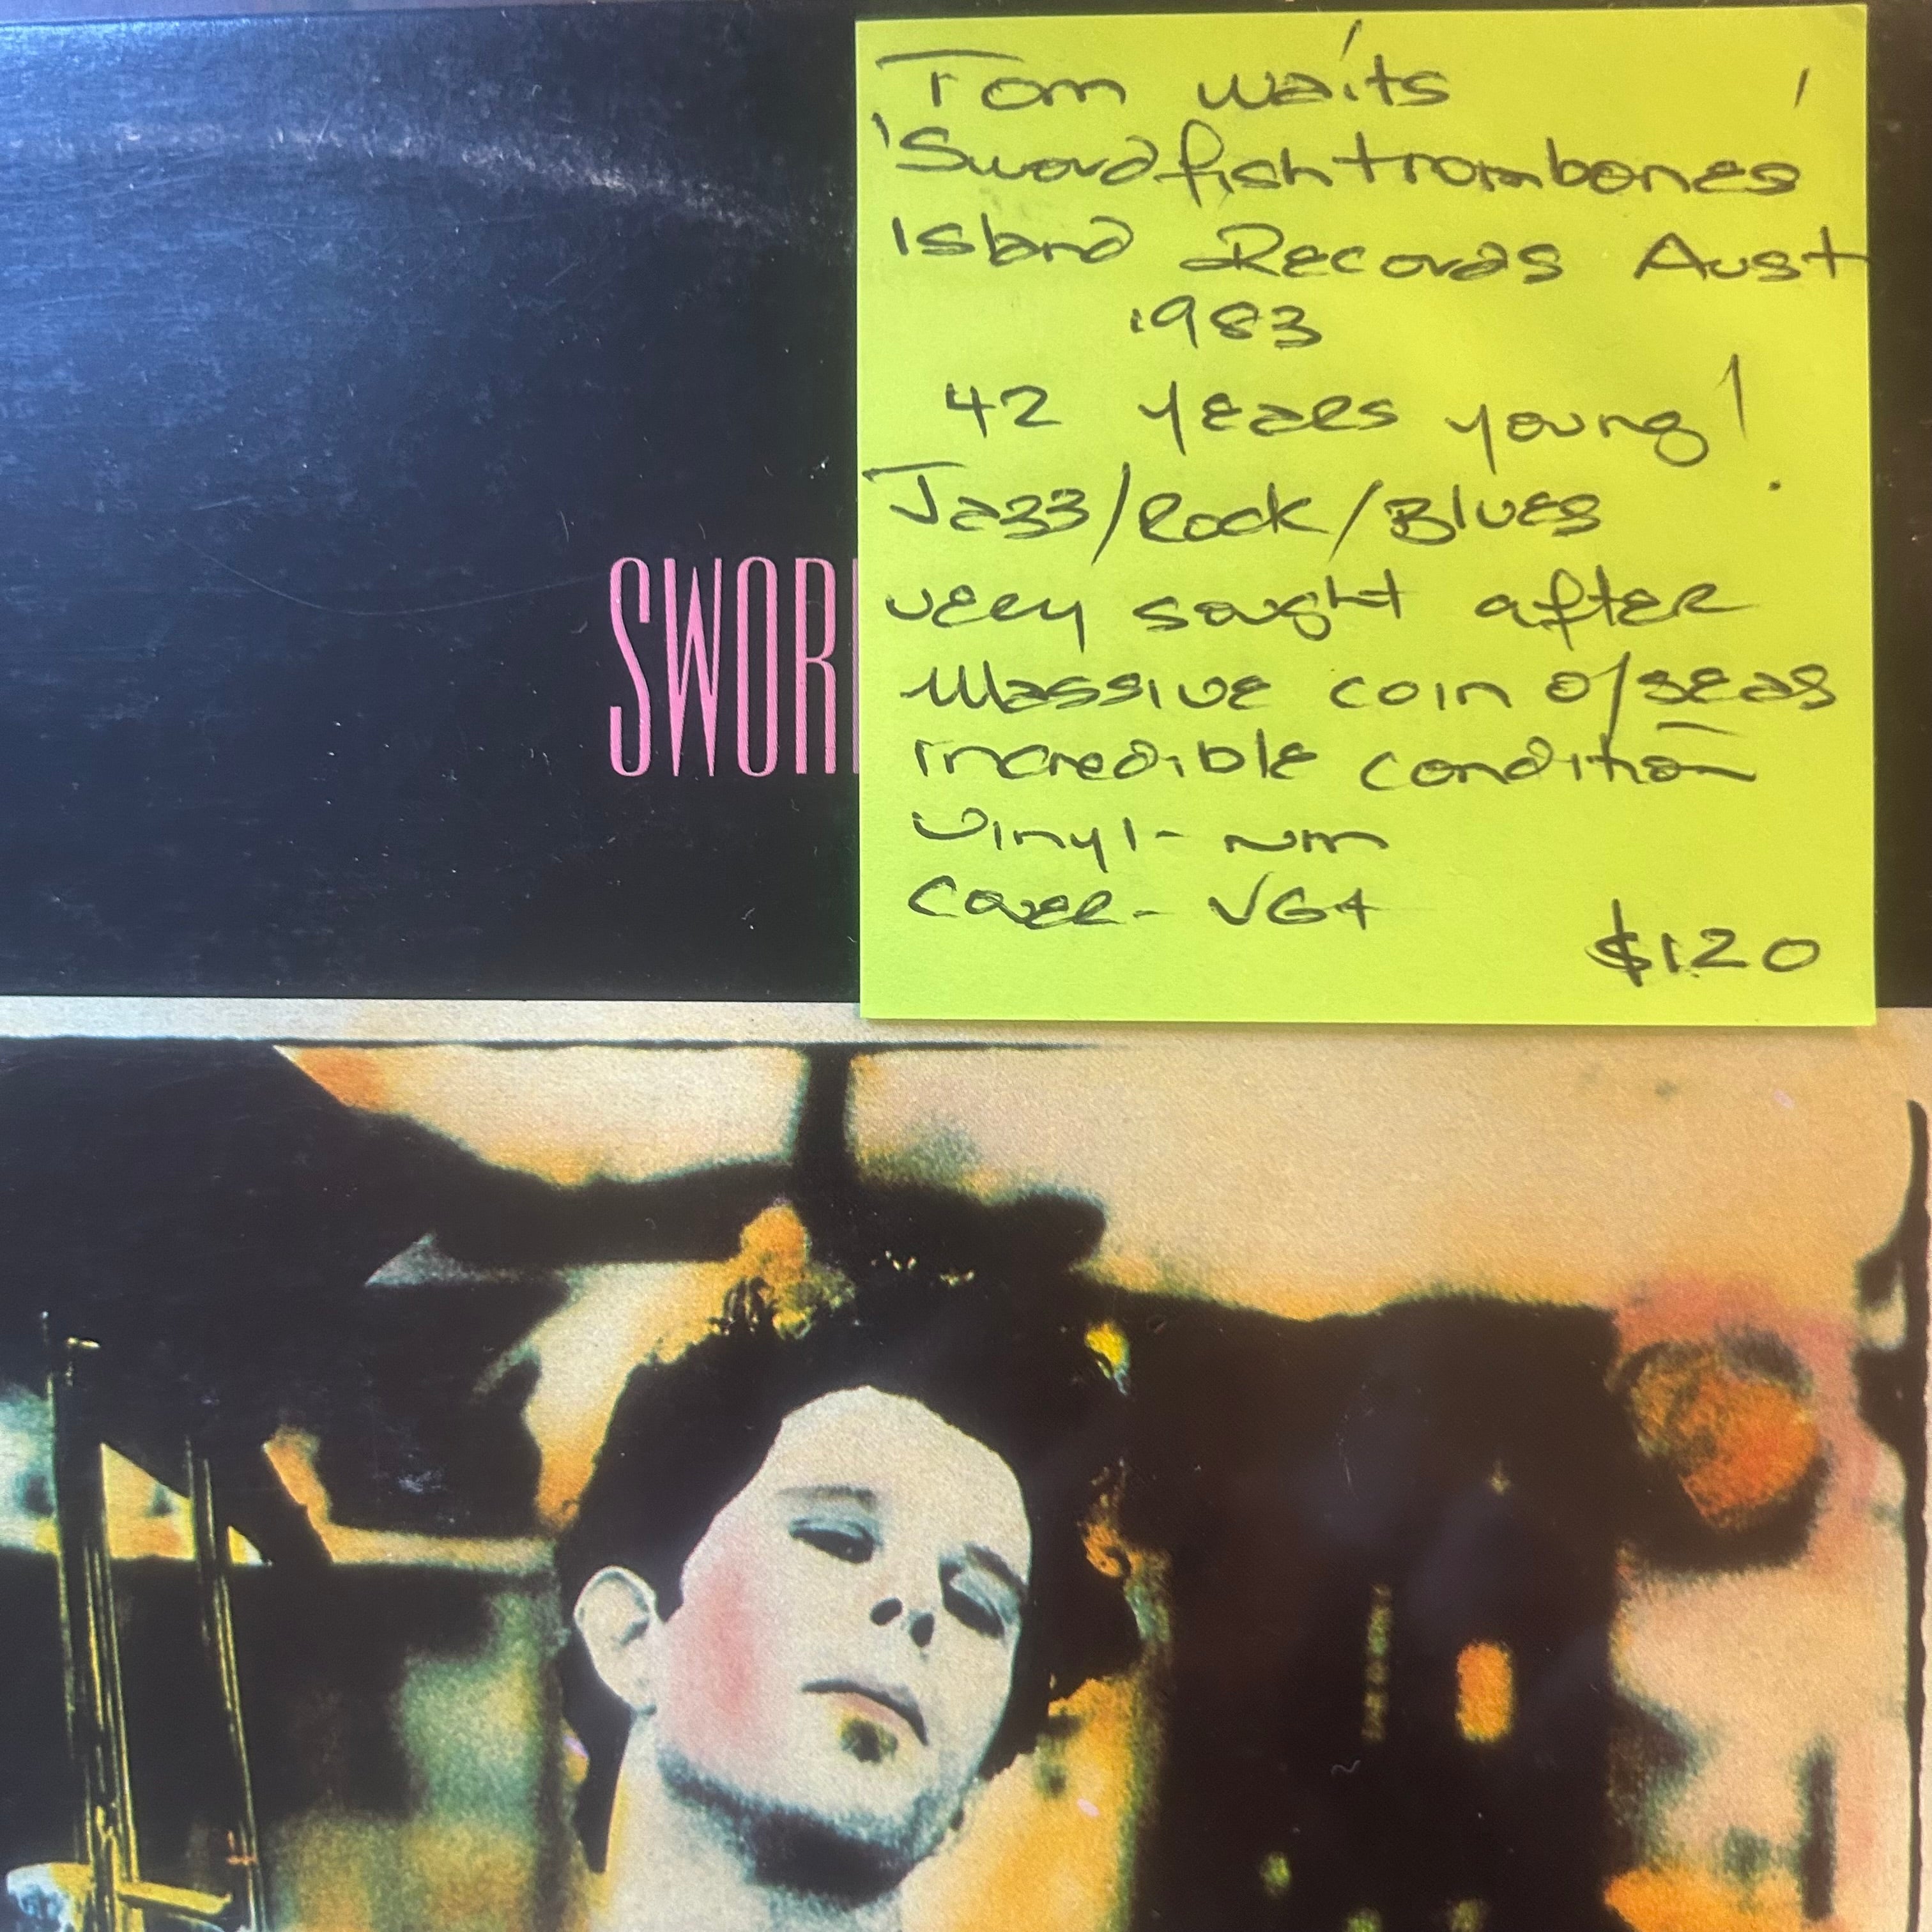 Tom Waits
'Swordfishtrombones'
Island Records Aust
1983
42 years young!
Jazz/Rock/Blues
very sought after
Massive coin o/seas
incredible condition
Vinyl - NM
Cover - VG+
$120
SWOR